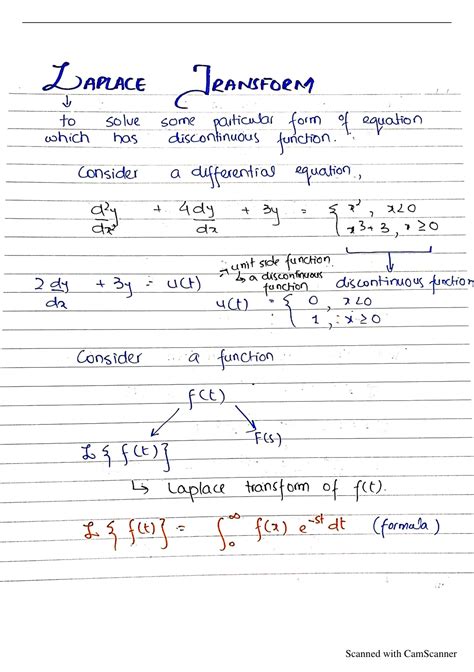 LAPLACE TRANSFORM
↓
to solve some particular form of equation
which has discontinuous function.
Consider a differential equation,
d²y/dx² + 4dy/dx + 3y = { x², x<0
x³+3, x≥0
2 dy/dx + 3y = u(t) → unit side function
↳ a discontinuous function
discontinuous function
u(t) = { 0, x<0
1, x≥0
Consider a function
f(t)
L{f(t)} F(s)
↳ Laplace transform of f(t).
L{f(t)} = ∫₀^∞ f(x) e^-st dt (formula)
Scanned with CamScanner